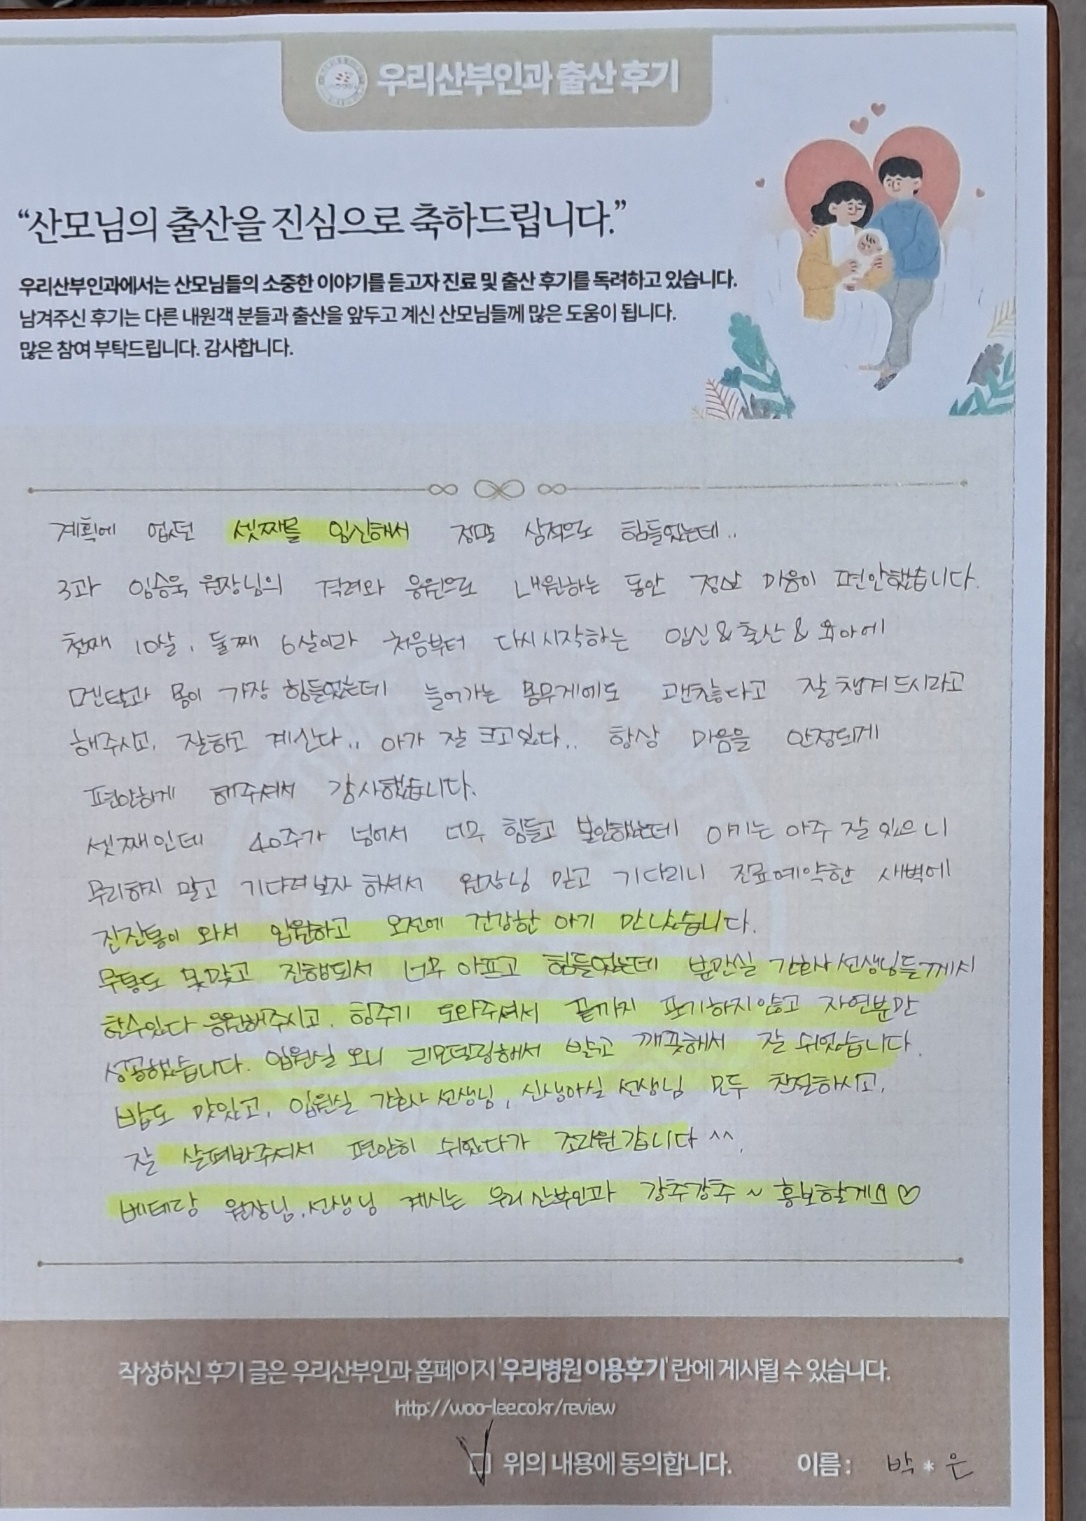 우리산부인과 출산 후기
“산모님의 출산을 진심으로 축하드립니다.”
우리산부인과에서는 산모님들의 소중한 이야기를 듣고자 진료 및 출산 후기를 독려하고 있습니다.
남겨주신 후기는 다른 내원객 분들과 출산을 앞두고 계신 산모님들께 많은 도움이 됩니다.
많은 참여 부탁드립니다. 감사합니다.
계획에 없던 셋째를 임신해서 정말 심적으로 힘들었는데..
3과 임승욱 원장님의 격려와 응원으로 내원하는 동안 정말 마음이 편안했습니다.
첫째 10살, 둘째 6살이라 처음부터 다시 시작하는 임신&출산&육아에
멘탈과 몸이 가장 힘들었는데 늘어가는 몸무게에도 괜찮다고 잘 챙겨드시라고
해주시고, 잘하고 계신다.. 아가 잘 크고있다.. 항상 마음을 안정되게
편안하게 해주셔서 감사했습니다.
셋째인데 40주가 넘어서 너무 힘들고 불안했는데 아기는 아주 잘 있으니
무리하지 말고 기다려보자 하셔서 원장님 믿고 기다리니 진료예약한 새벽에
진진통이 와서 입원하고 오전에 건강한 아기 만났습니다.
무통도 못맞고 진행되서 너무 아프고 힘들었는데 분만실 간호사 선생님들께서
할수있다 응원해주시고, 힘주기 도와주셔서 끝까지 포기하지않고 자연분만
성공했습니다. 입원실 오니 리모델링해서 밝고 깨끗해서 잘 쉬었습니다.
밥도 맛있고, 입원실 간호사 선생님, 신생아실 선생님 모두 친절하시고,
잘 살펴봐주셔서 편안히 쉬었다가 조리원갑니다 ^^.
베테랑 원장님, 선생님 계시는 우리산부인과 강추강추~ 홍보할게요♡
작성하신 후기 글은 우리산부인과 홈페이지 '우리병원 이용후기' 란에 게시될 수 있습니다.
http://woo-lee.co.kr/review
위의 내용에 동의합니다. 이름 : 박 * 은